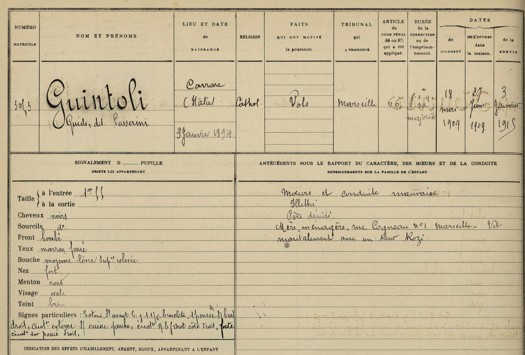 NUMÉRO
MATRICULE
NOM ET PRÉNOMS
LIEU ET DATE
de
NAISSANCE
RELIGION
FAITS
QUI ONT MOTIVÉ
la poursuite
TRIBUNAL
qui
A PRONONCÉ
ARTICLE
du
CODE PÉNAL
(66 ou 67)
qui a été
appliqué.
DURÉE
de la
CORRECTION
ou de
l'emprisonne-
ment.
DATES
du
JUGEMENT
de
L'ENTRÉE
dans la
maison.
de la
SORTIE
Guintoli
Guido, dit Passerini
Carrare
(Italie)
3 Janvier 1894
Cathol.
Vols
Marseille
66
majorité
18
mai
1909
29
Juin
1909
3
Janvier
1915
SIGNALEMENT D PUPILLE
OBJETS LUI APPARTENANT
ANTÉCÉDENTS SOUS LE RAPPORT DU CARACTÈRE, DES MŒURS ET DE LA CONDUITE
RENSEIGNEMENTS SUR LA FAMILLE DE L'ENFANT
Taille à l'entrée 1m55
à la sortie
Cheveux noirs
Sourcils do
Front bombé
Yeux marron foncé
Bouche moyenne lèvre supre relevée
Nez fort
Menton rond
Visage ovale
Teint brun
Signes particuliers :
Mœurs et conduite mauvaise
Illettré
Père décédé
Mère, ménagère, rue nº 1 Marseille - Vit
maritalement avec un sieur Rozi
INDICATION DES EFFETS D'HABILLEMENT, ARGENT, BIJOUX, APPARTENANT A L'ENFANT